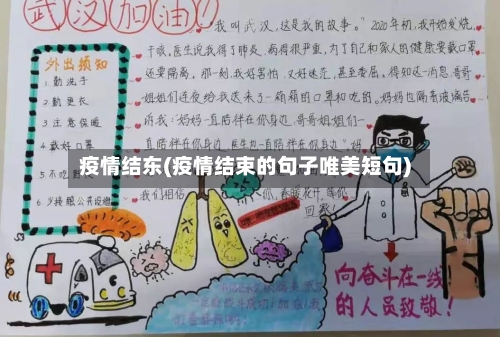 武汉加油!
外出须知
1. 勤洗手
2. 勤更衣
3. 注意保暖
4. 戴好口罩
5. 不吃野
6. 少接触公共设施
“我叫武汉,这是我的故事。”2020年初,我开始发烧、
干咳。医生说我得了肺炎,病得很严重,为了自己和家人的健康要戴口罩
还要隔离。那一刻,我好害怕,又好迷茫,甚至委屈。得知这一消息,哥哥
姐姐们连夜给我送来了一箱箱的口罩和吃的。妈妈也隔着玻璃告
诉我:妈妈一直陪伴在你身边,哥哥姐姐们一
直陪伴在你身边
疫情结东(疫情结束的句子唯美短句)
我们相信
春暖花开,等你
回家!
向奋斗在一线
的人员致敬!